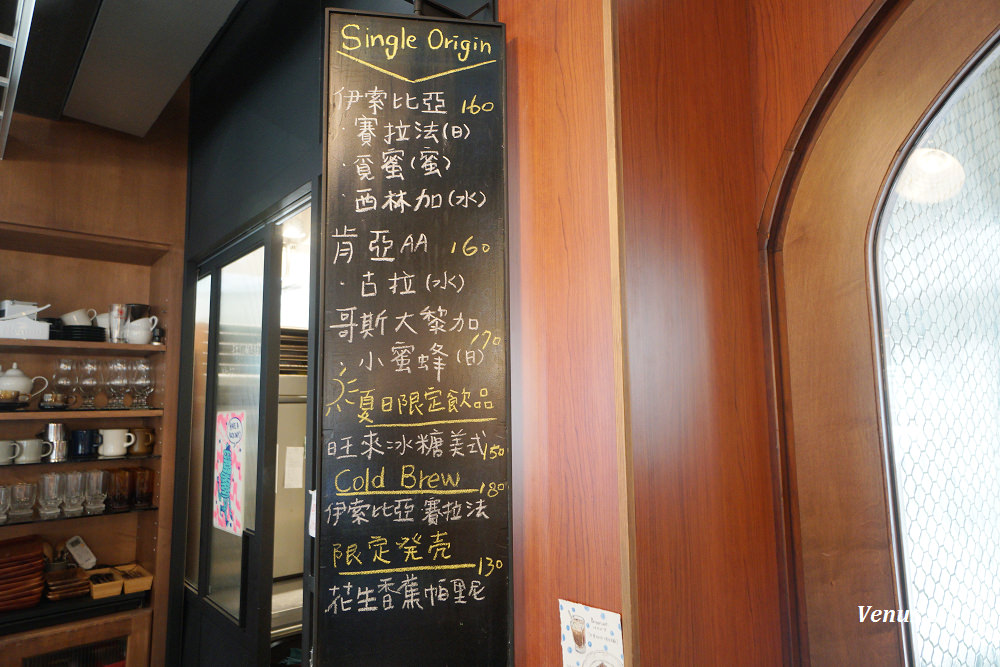 Single Origin
伊索比亞 160
·賽拉法(日)
·覓蜜(蜜)
·西林加(水)
肯亞AA 160
·古拉(水)
哥斯大黎加 170
·小蜜蜂(日)
夏日限定飲品
旺來冰糖美式 150
Cold Brew 180
伊索比亞 賽拉法
限定発売 130
花生香蕉帕里尼
Venu